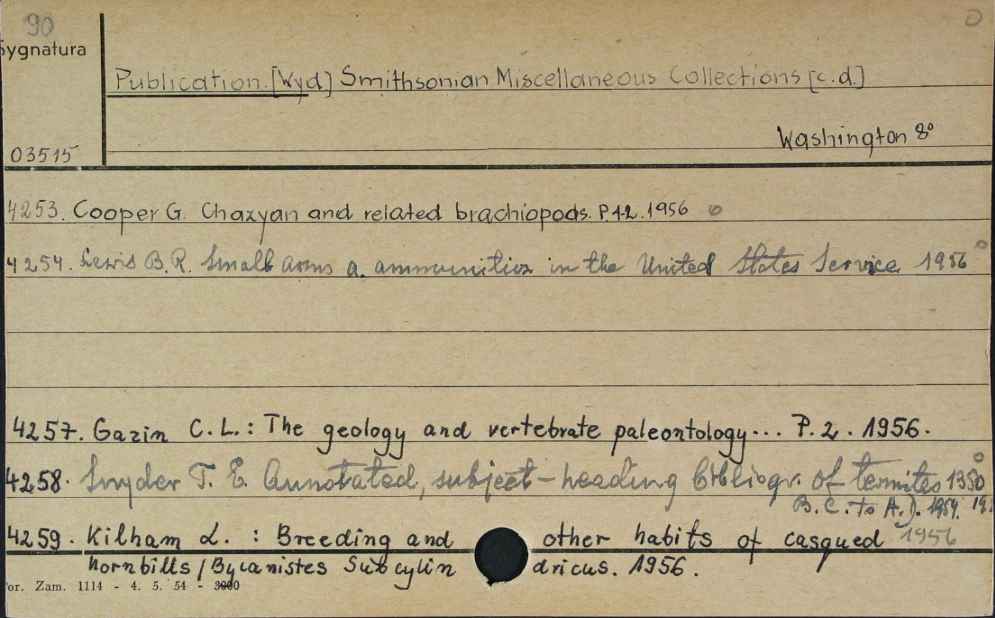 90
Sygnatura
Publication. [Wyd] Smithsonian Miscellaneous Collections [c.d.]
Washington 8°
03515
4253. Cooper G. Chazyan and related brachiopods. P.1-2. 1956
4254. Lewis B.R. Small arms a. ammunition in the United States Service 1956
4257. Gazin C.L.: The geology and vertebrate paleontology... P.2. 1956.
4258. Snyder T. E. Annotated, subject-heading bibliogr. of termites 1350
B.C. to A.D. 1954.
4259. Kilham L. : Breeding and other habits of casqued 1956
hornbills /Bycanistes Subcylindricus. 1956.
or. Zam. 1114 - 4. 5. 54 - 3000